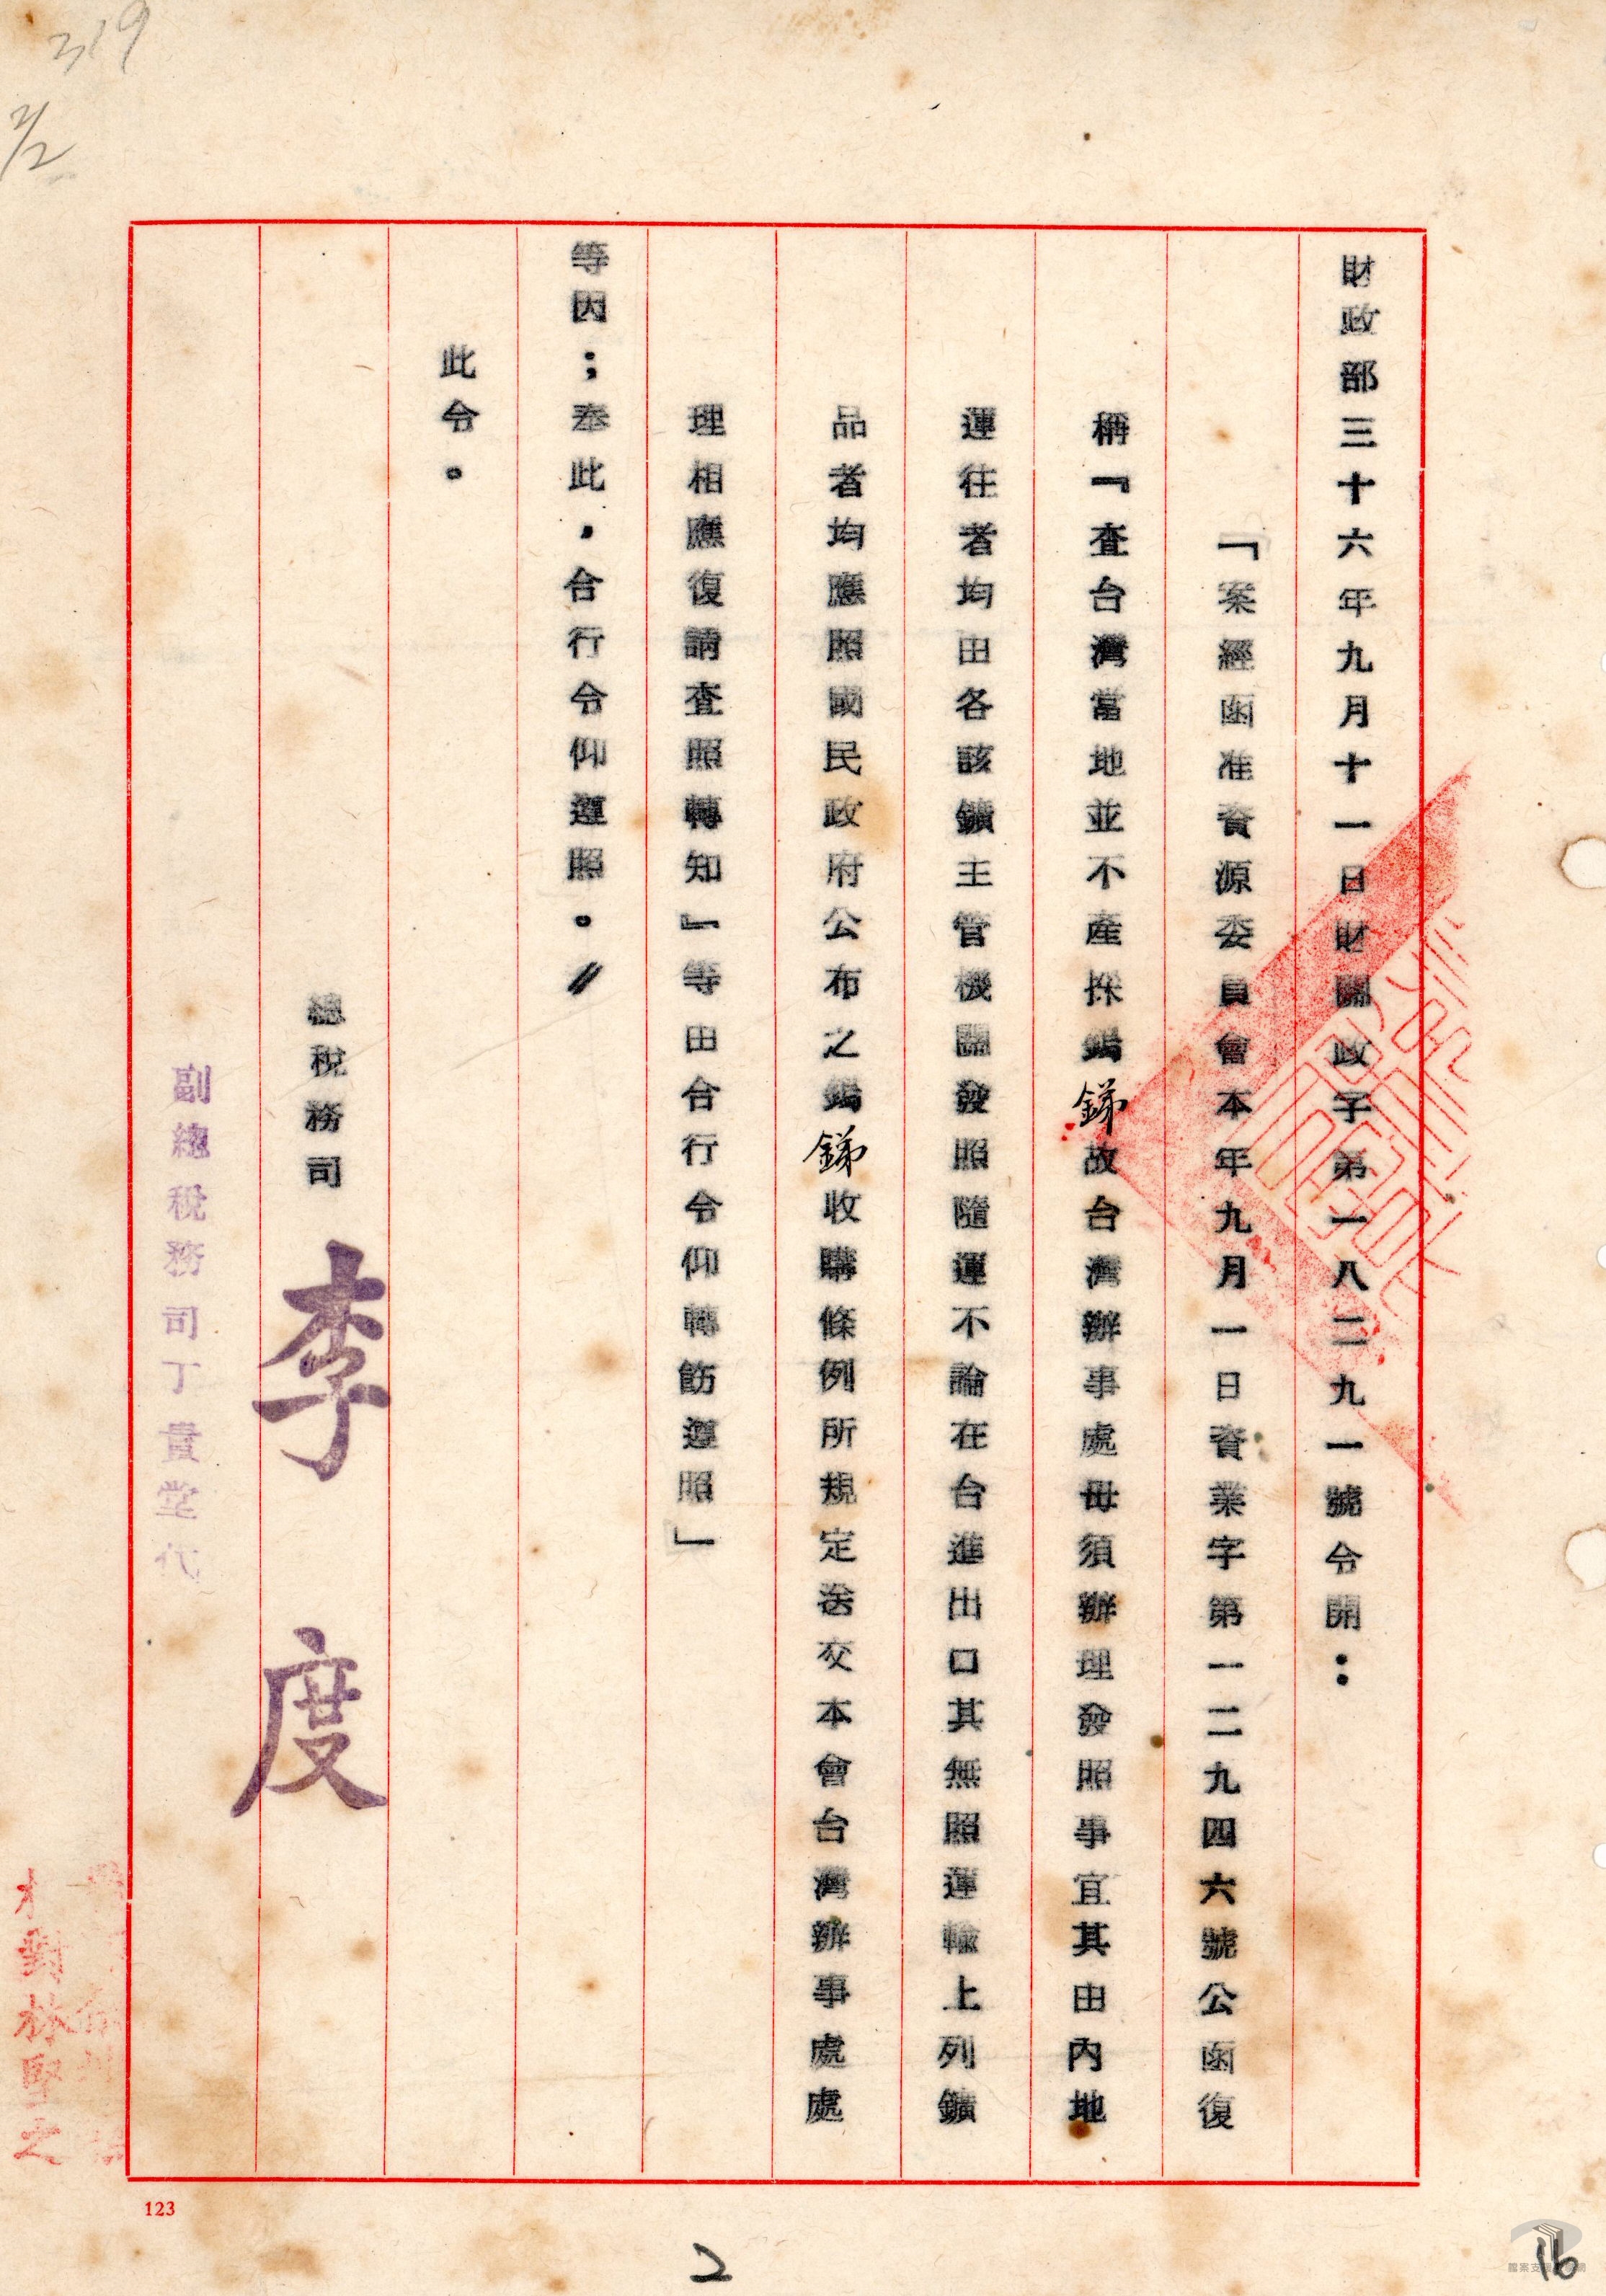 319
2/2
財政部三十六年九月十一日財關政字第一八二九一號令開：
「案經函准資源委員會本年九月一日資業字第一二九四六號公函復
稱『查台灣當地並不產採錫銻故台灣辦事處毋須辦理發照事宜其由內地
運往者均由各該鑛主管機關發照隨運不論在台進出口其無照運輸上列鑛
品者均應照國民政府公布之錫銻收購條例所規定送交本會台灣辦事處處
理相應復請查照轉知』等由合行令仰轉飭遵照」
等因；奉此，合行令仰遵照。〃
此令。
總稅務司 李度
副總稅務司丁貴堂代
對林堅之
123
2
16